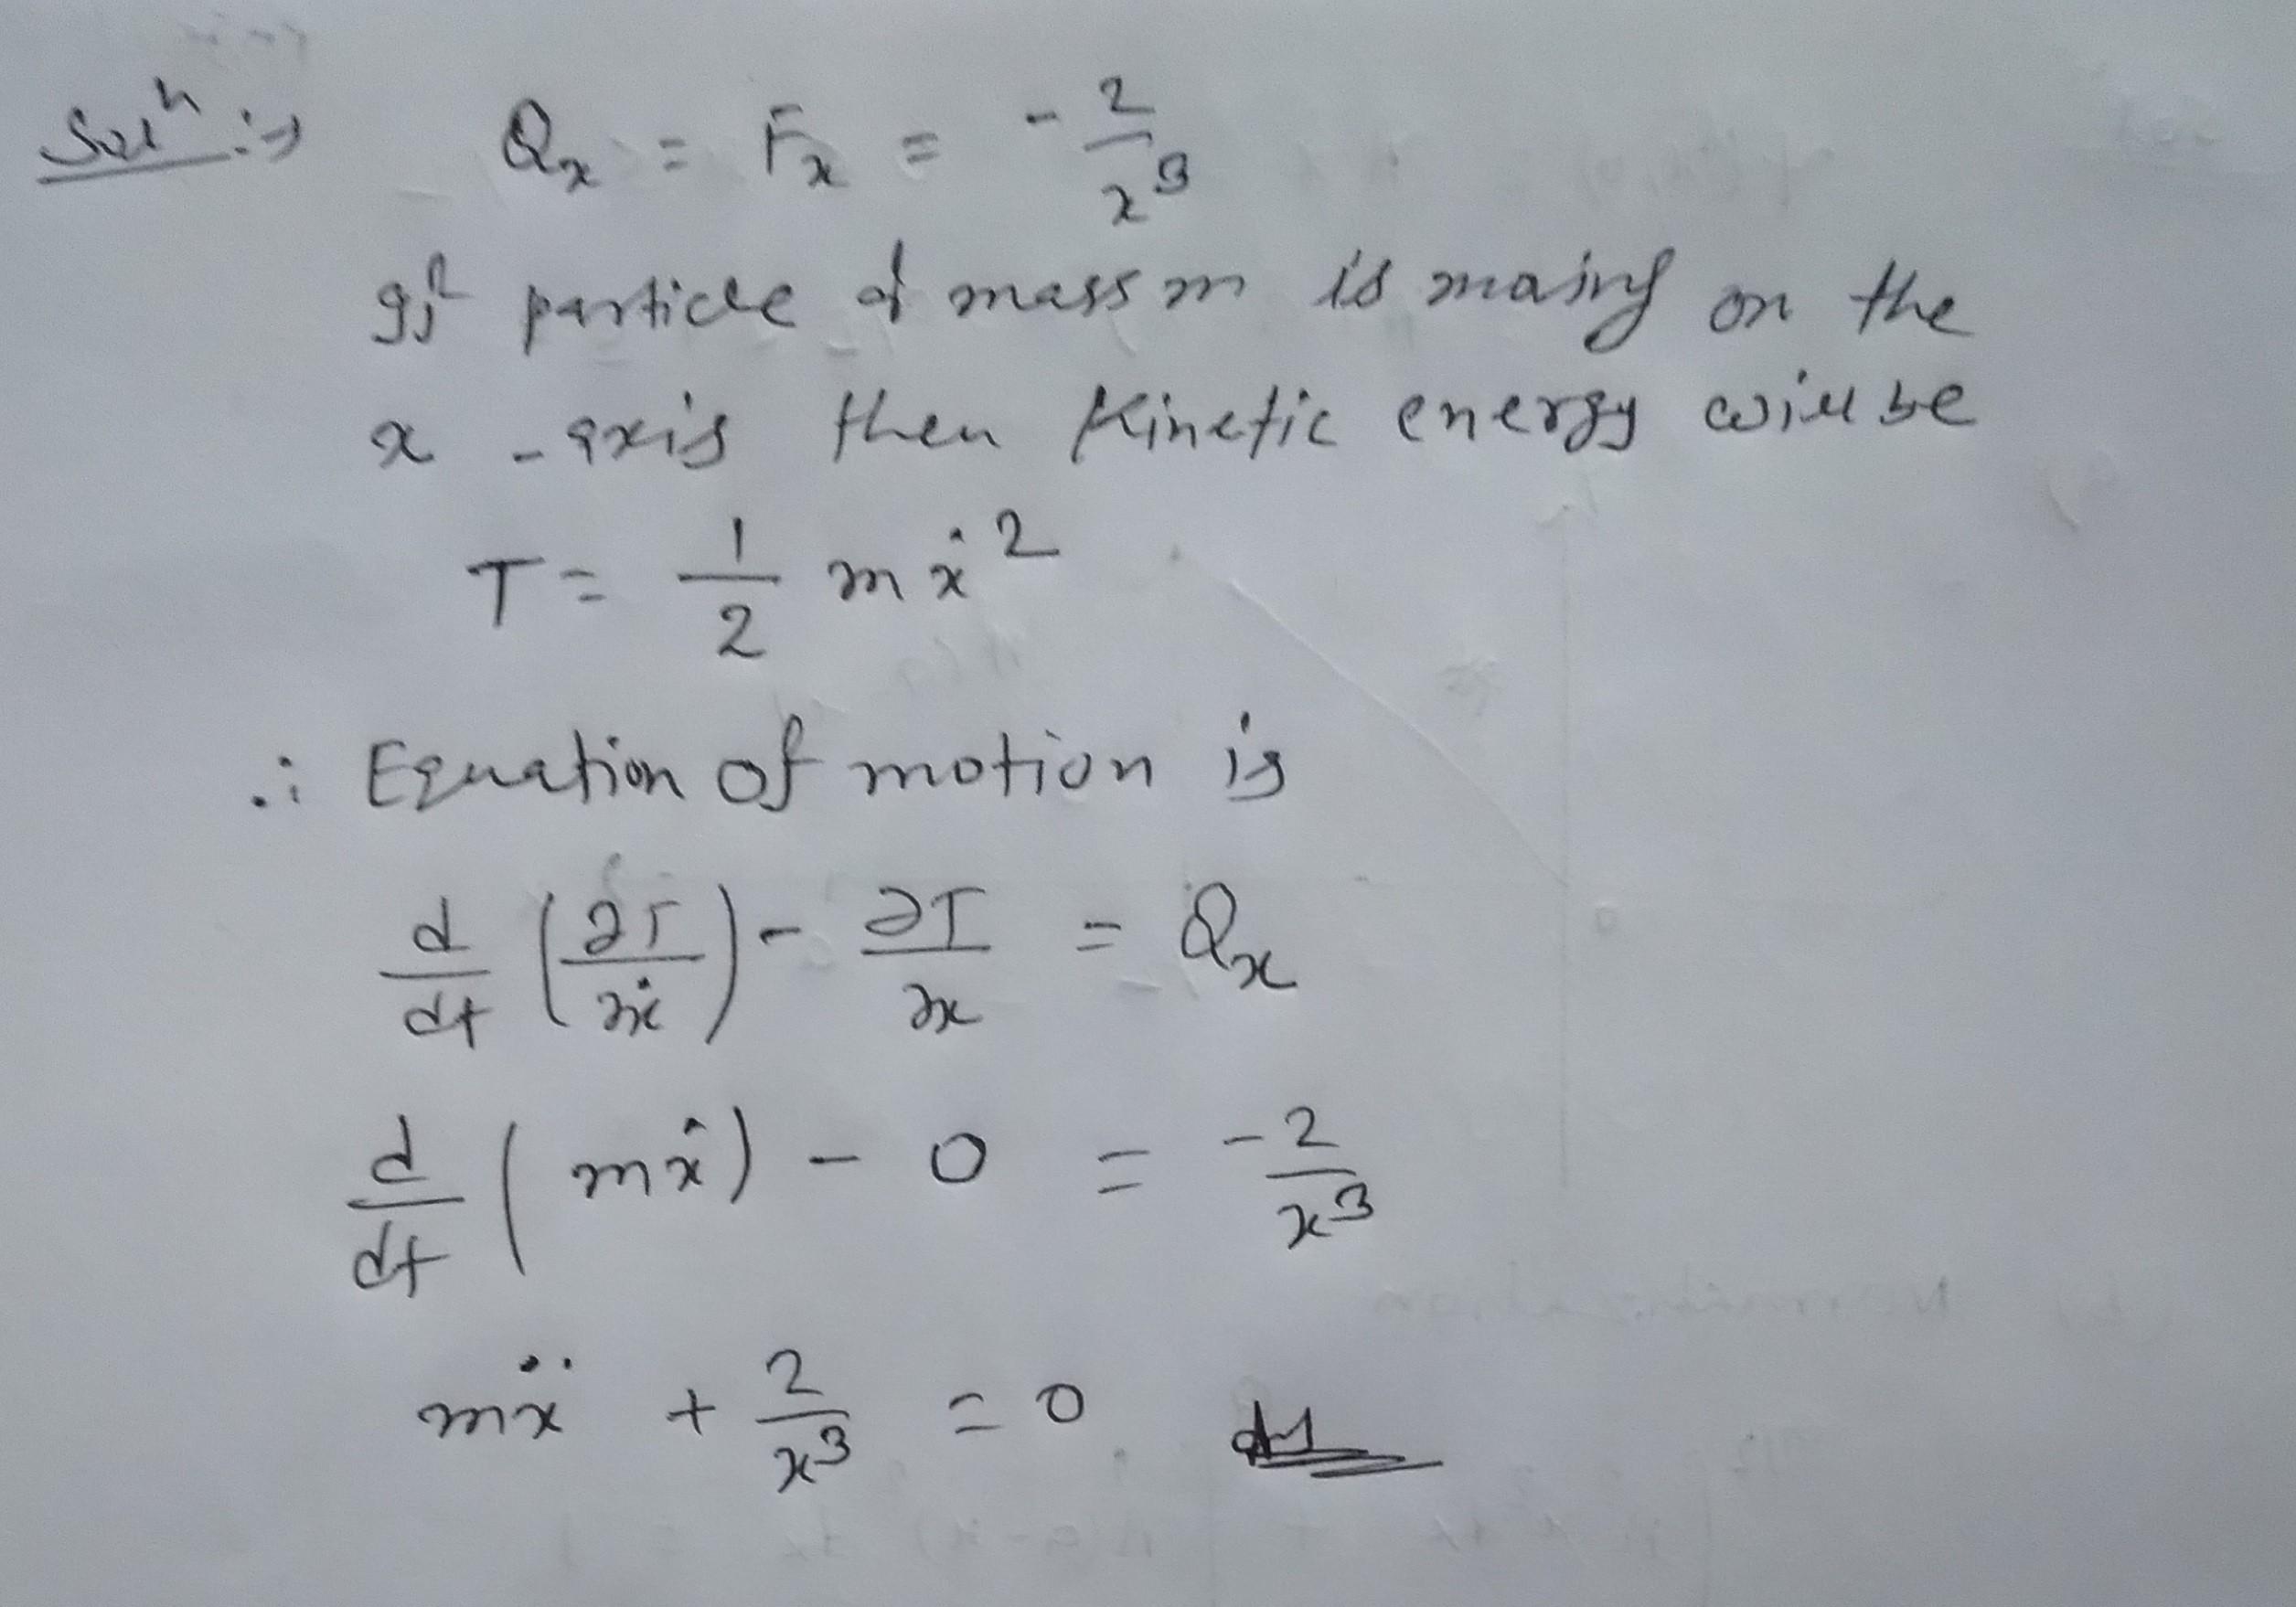 Solⁿ :→ Qₓ = Fₓ = - 2/x³
If particle of mass m is moving on the
x - axis then Kinetic energy will be
T = 1/2 m ẋ²
∴ Equation of motion is
d/dt (∂T/∂ẋ) - ∂T/∂x = Qₓ
d/dt (mẋ) - 0 = -2/x³
mẍ + 2/x³ = 0